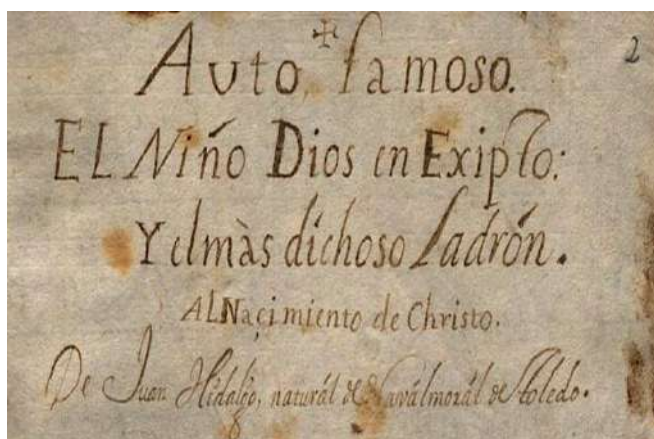 2
Auto famoso.
EL Niño Dios en Exipto:
Y el màs dichoso Ladrón.
AL Naçimiento de Christo.
De Juan Hidalgo, naturál de Naválmorál de Toledo.